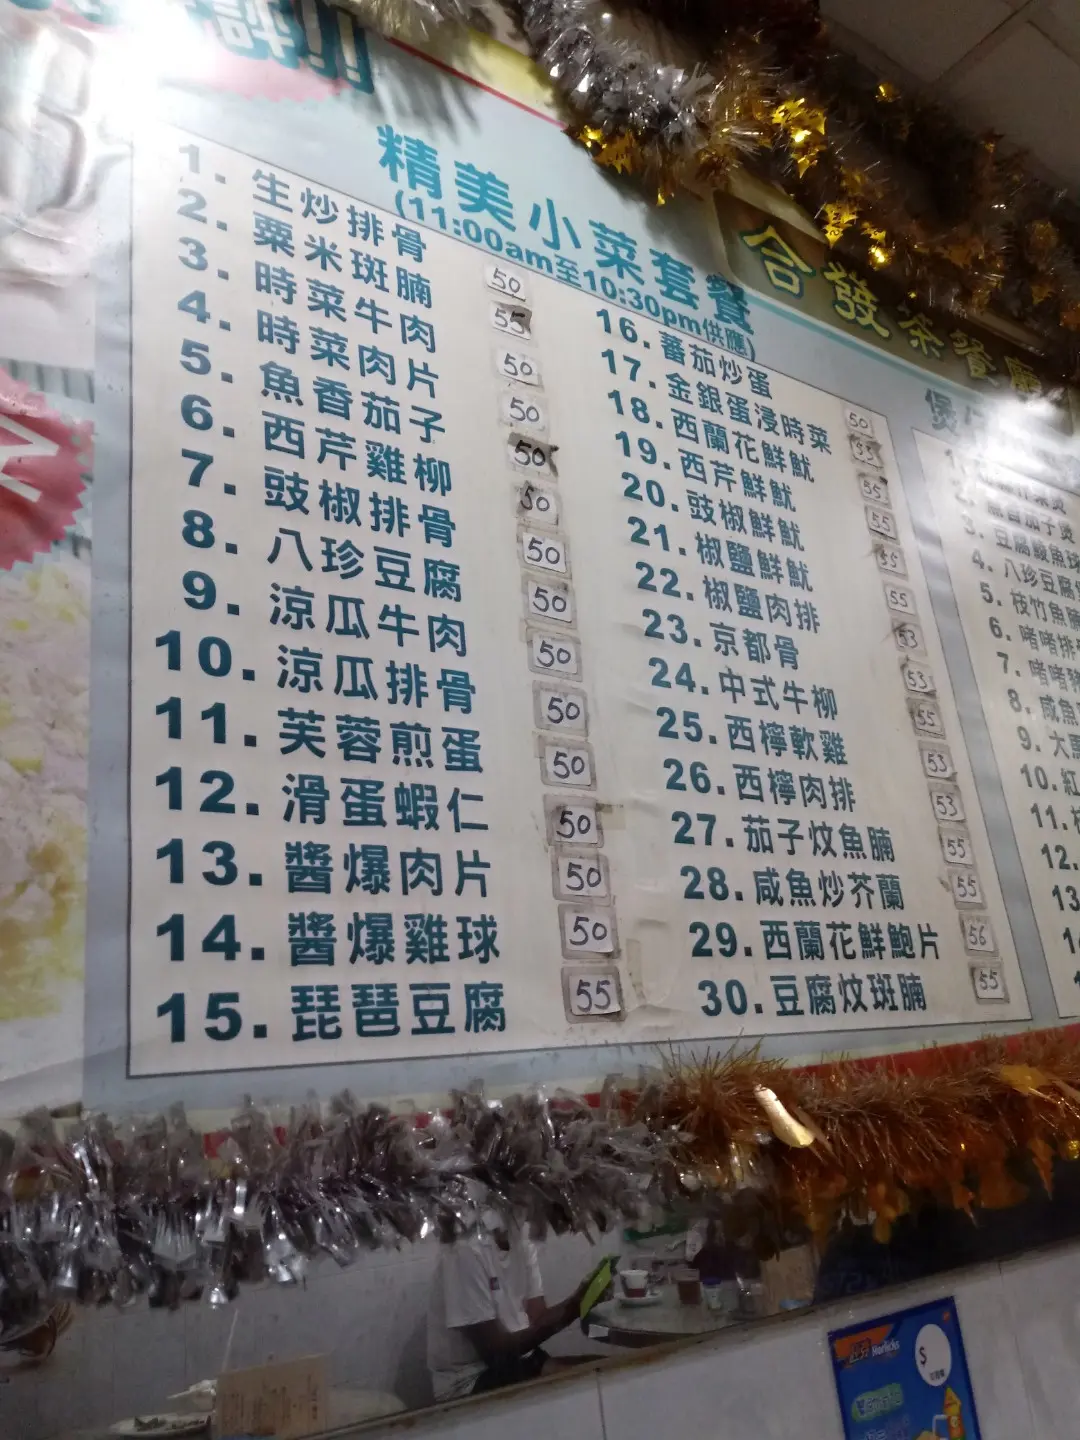 評!!
精美小菜套餐
(11:00am至10:30pm供應)
合發茶餐廳
1. 生炒排骨 50
2. 粟米斑腩 55
3. 時菜牛肉 50
4. 時菜肉片 50
5. 魚香茄子 50
6. 西芹雞柳 50
7. 豉椒排骨 50
8. 八珍豆腐 50
9. 涼瓜牛肉 50
10. 涼瓜排骨 50
11. 芙蓉煎蛋 50
12. 滑蛋蝦仁 50
13. 醬爆肉片 50
14. 醬爆雞球 50
15. 琵琶豆腐 55
16. 蕃茄炒蛋 50
17. 金銀蛋浸時菜
18. 西蘭花鮮魷 55
19. 西芹鮮魷 55
20. 豉椒鮮魷 55
21. 椒鹽鮮魷 55
22. 椒鹽肉排 53
23. 京都骨 53
24. 中式牛柳 55
25. 西檸軟雞 53
26. 西檸肉排 53
27. 茄子炆魚腩 55
28. 咸魚炒芥蘭 55
29. 西蘭花鮮鮑片 56
30. 豆腐炆斑腩 55
煲
3. 豆腐
4. 八珍豆腐
5. 枝竹魚腩
6. 啫啫排
7. 啫啫
8. 咸魚
9. 大
10. 紅
11.
12.
13
Horlicks
$